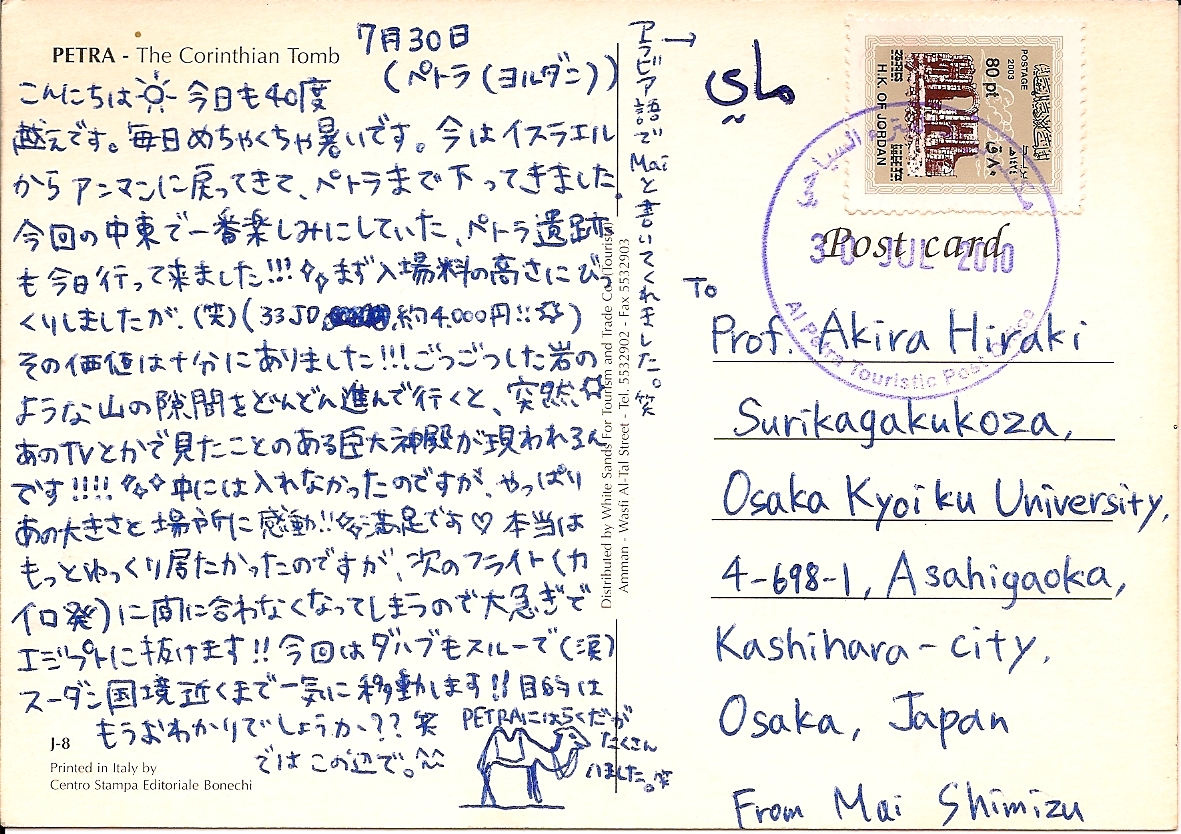 PETRA - The Corinthian Tomb
7月30日
(ペトラ(ヨルダン))
こんにちは 今日も40度
越えです。毎日めちゃくちゃ暑いです。今はイスラエル
からアンマンに戻ってきて、ペトラまで下ってきました。
今回の中東で一番楽しみにしていた、ペトラ遺跡
も今日行って来ました!!! まず入場料の高さにびっ
くりしましたが、(笑)(33JD 約4,000円!!)
その価値は十分にありました!!!ごつごつした岩の
ような山の隙間をどんどん進んで行くと、突然
あのTVとかで見たことのある巨大神殿が現われるん
です!!!! 中には入れなかったのですが、やっぱり
あの大きさと場所に感動!! 満足です♡ 本当は
もっとゆっくり居たかったのですが、次のフライト(カ
イロ発)に間に合わなくなってしまうので大急ぎで
エジプトに抜けます!! 今回はダハブもスルーで(涙)
スーダン国境近くまで一気に移動します!! 目的は
もうおわかりでしょうか?? 笑
ではこの辺で。
PETRAにはらくだが
たくさん
いました。笑
J-8
Printed in Italy by
Centro Stampa Editoriale Bonechi
Distributed by White Sands For Tourism and Trade Co/Tourism
Amman - Wasfi Al-Tal Street - Tel. 5532902 - Fax 5532903
アラビア語でMaiと書いてくれました。笑
→
ماى
POSTAGE
2003
80 pt
H.K. OF JORDAN
Post card
30 JUL 2010
Al Petra Touristic Post Office
To
Prof. Akira Hiraki
Surikagakukoza,
Osaka Kyoiku University,
4-698-1, Asahigaoka,
Kashihara-city,
Osaka, Japan
From Mai Shimizu